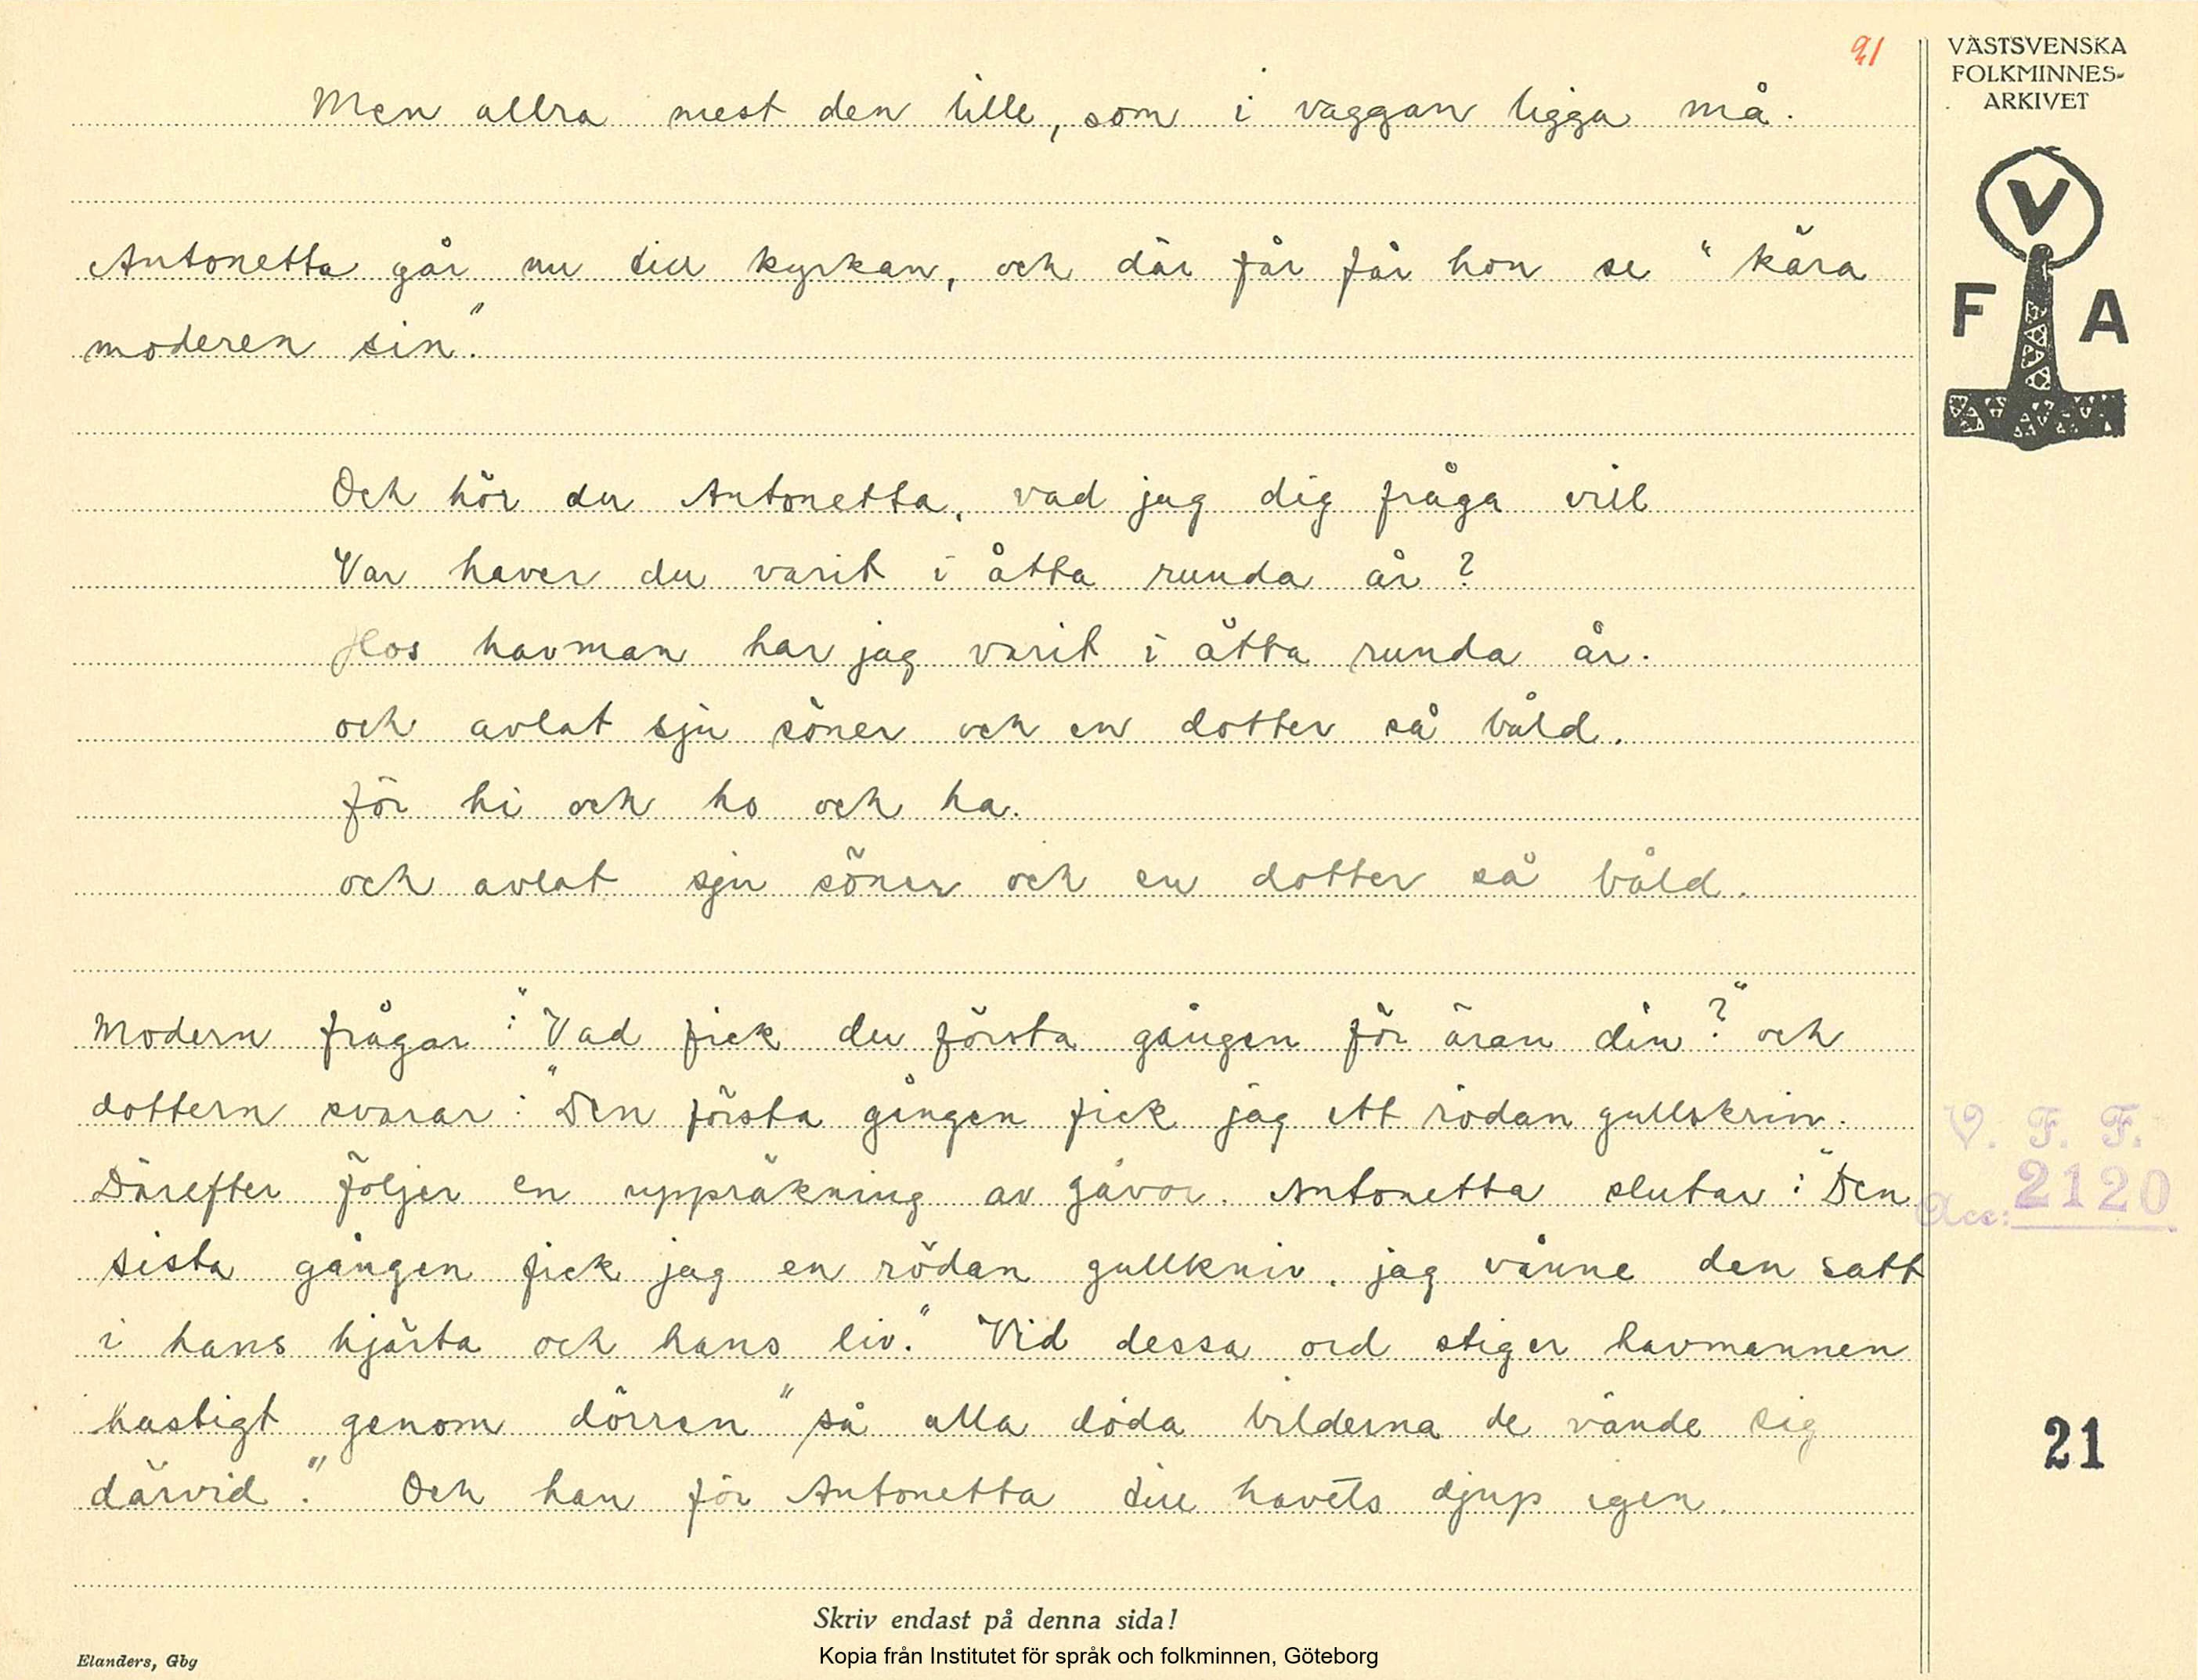 21
VÄSTSVENSKA
FOLKMINNES-
ARKIVET
V
F A
Men allra mest den lille, som i vaggan ligga må.
Antonetta går nu till kyrkan, och där får får hon se "kära
moderen sin."
Och hör du Antonetta, vad jag dig fråga vill
Var haver du varit i åtta runda år?
Hos havman har jag varit i åtta runda år.
och avlat sju söner och en dotter så båld.
för hi och ho och ha.
och avlat sju söner och en dotter så båld.
Modern frågar: "Vad fick du första gången för äran din?" och
dottern svarar: "Den första gången fick jag ett rödan gullskrin.
Därefter följer en uppräkning av gåvor. Antonetta slutar: "Den
sista gången fick jag en rödan gullkniv, jag vänne den satt
i hans hjärta och hans liv." Vid dessa ord stiger havmannen
hastigt genom dörren "så alla döda bilderna de vände sig
därvid." Och han för Antonetta till havets djup igen.
V. F. F.
Acc: 2120
21
Skriv endast på denna sida!
Kopia från Institutet för språk och folkminnen, Göteborg
Elanders, Gbg